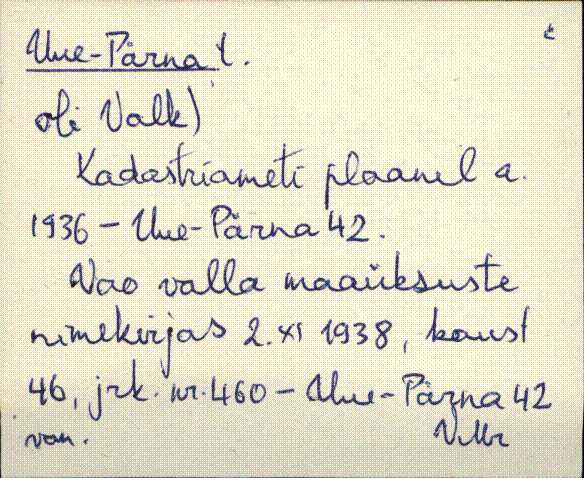 Uue-Pärna t.
oli Valk)
Kadastriameti plaanil a.
1936 - Uue-Pärna 42.
Vao valla maaüksuste
nimekirjas 2. XI 1938, kaust
46, jrk. nr. 460 - Uue-Pärna 42
VMr